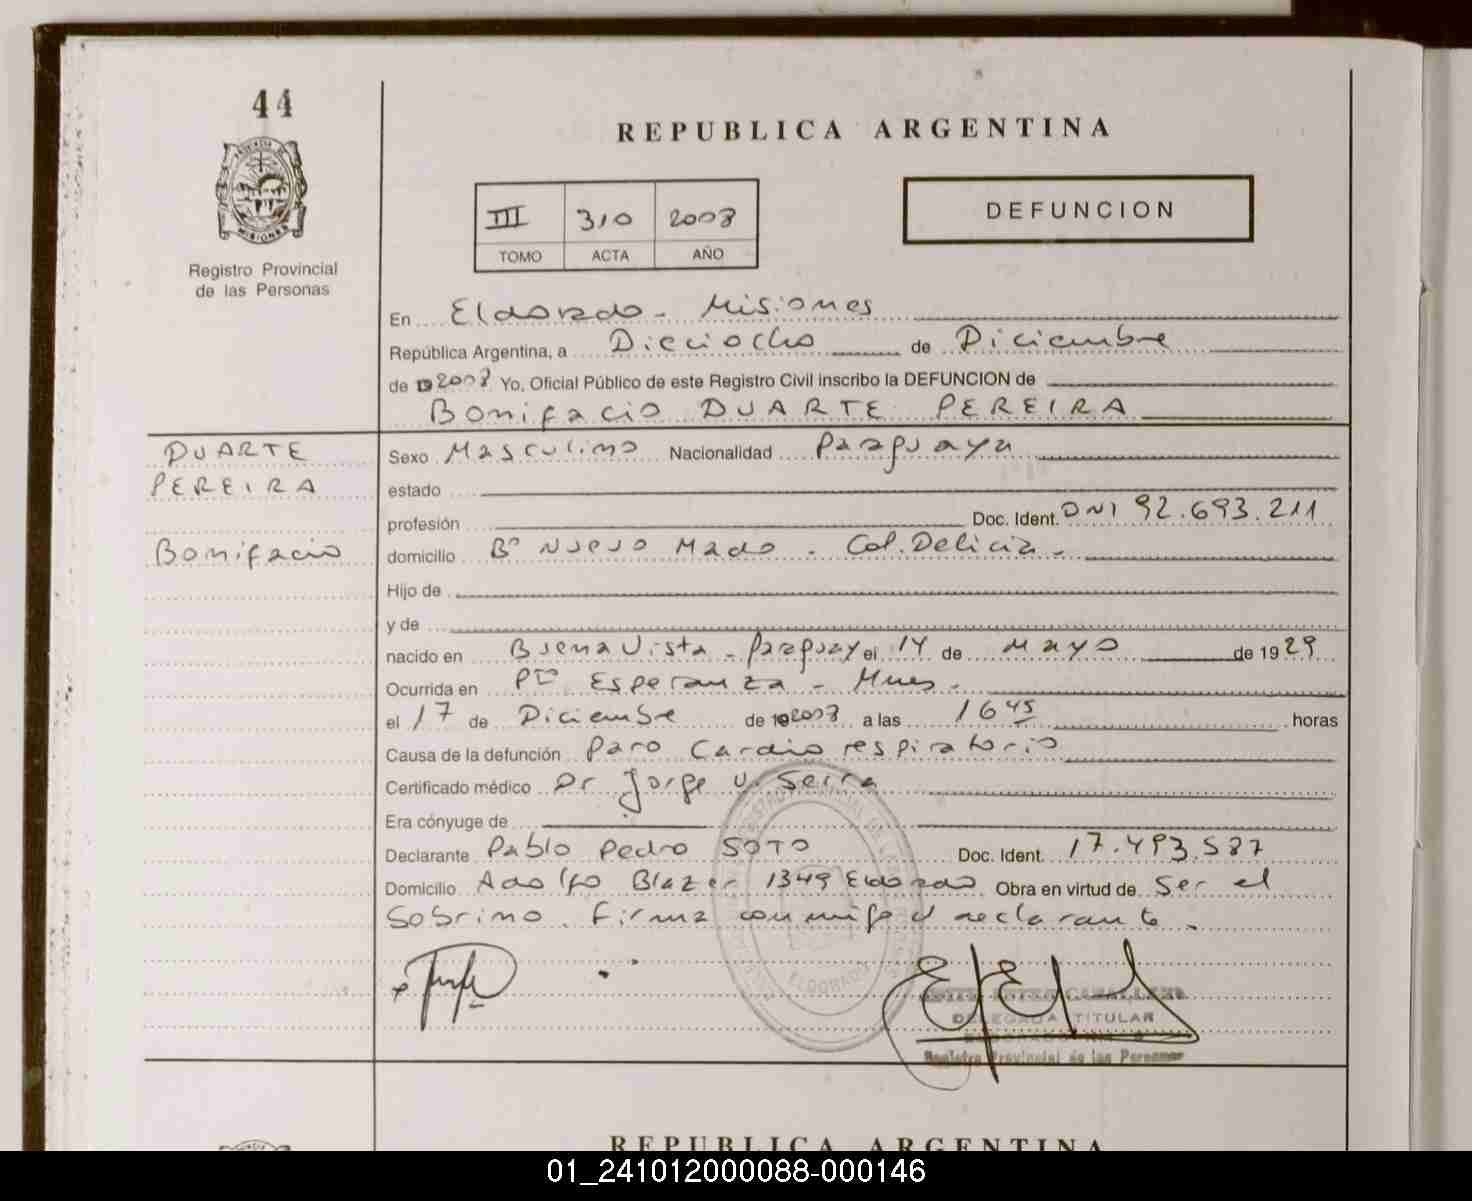 44
REPUBLICA ARGENTINA
PROVINCIA DE
MISIONES
Registro Provincial
de las Personas
III 310 2008
TOMO ACTA AÑO
DEFUNCION
En Eldorado - Misiones
República Argentina, a Dieciocho de Diciembre
de 2008 Yo, Oficial Público de este Registro Civil inscribo la DEFUNCION de
Bonifacio DUARTE PEREIRA
DUARTE
PEREIRA
Bonifacio
Sexo Masculino Nacionalidad Paraguaya
estado
profesión Doc. Ident. DNI 92.693.211
domicilio Bº Nuevo Mado - Col. Delicia -
Hijo de
y de
nacido en Buena Vista - Paraguay el 14 de Mayo de 1929
Ocurrida en Pto Esperanza - Mnes -
el 17 de Diciembre de 2008 a las 16 45 horas
Causa de la defunción Paro Cardio respiratorio
Certificado médico Dr Jorge V. Serra
Era cónyuge de
Declarante Pablo Pedro SOTO Doc. Ident. 17.493.587
Domicilio Adolfo Blazer 1349 Eldorado Obra en virtud de Ser el
Sobrino. Firma conmigo el declarante -
ELDORADO
DELEGADA TITULAR
Registro Provincial de las Personas
REPUBLICA ARGENTINA
01_241012000088-000146